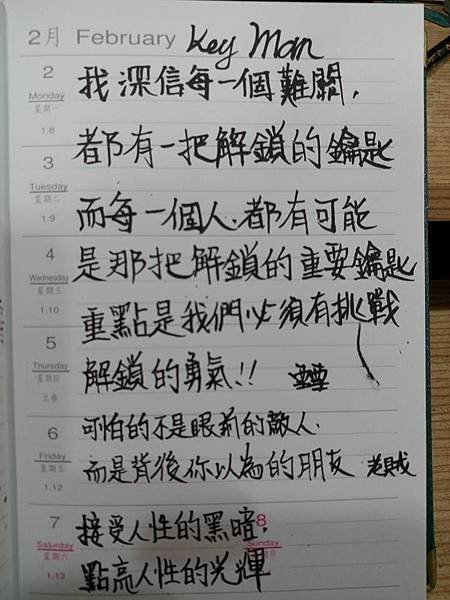 2月 February Key Man
2
Monday
星期一
1.8
我深信每一個難關,
都有一把解鎖的鑰匙
3
Tuesday
星期二
1.9
而每一個人、都有可能
4
Wednesday
星期三
1.10
是那把解鎖的重要鑰匙
重點是我們必須有挑戰
5
Thursday
星期四
立春
解鎖的勇氣!!
6
Friday
星期五
1.12
可怕的不是眼前的敵人、
而是背後你以為的朋友 老賊
7
Saturday
星期六
1.13
8
Sunday
接受人性的黑暗,
點亮人性的光輝